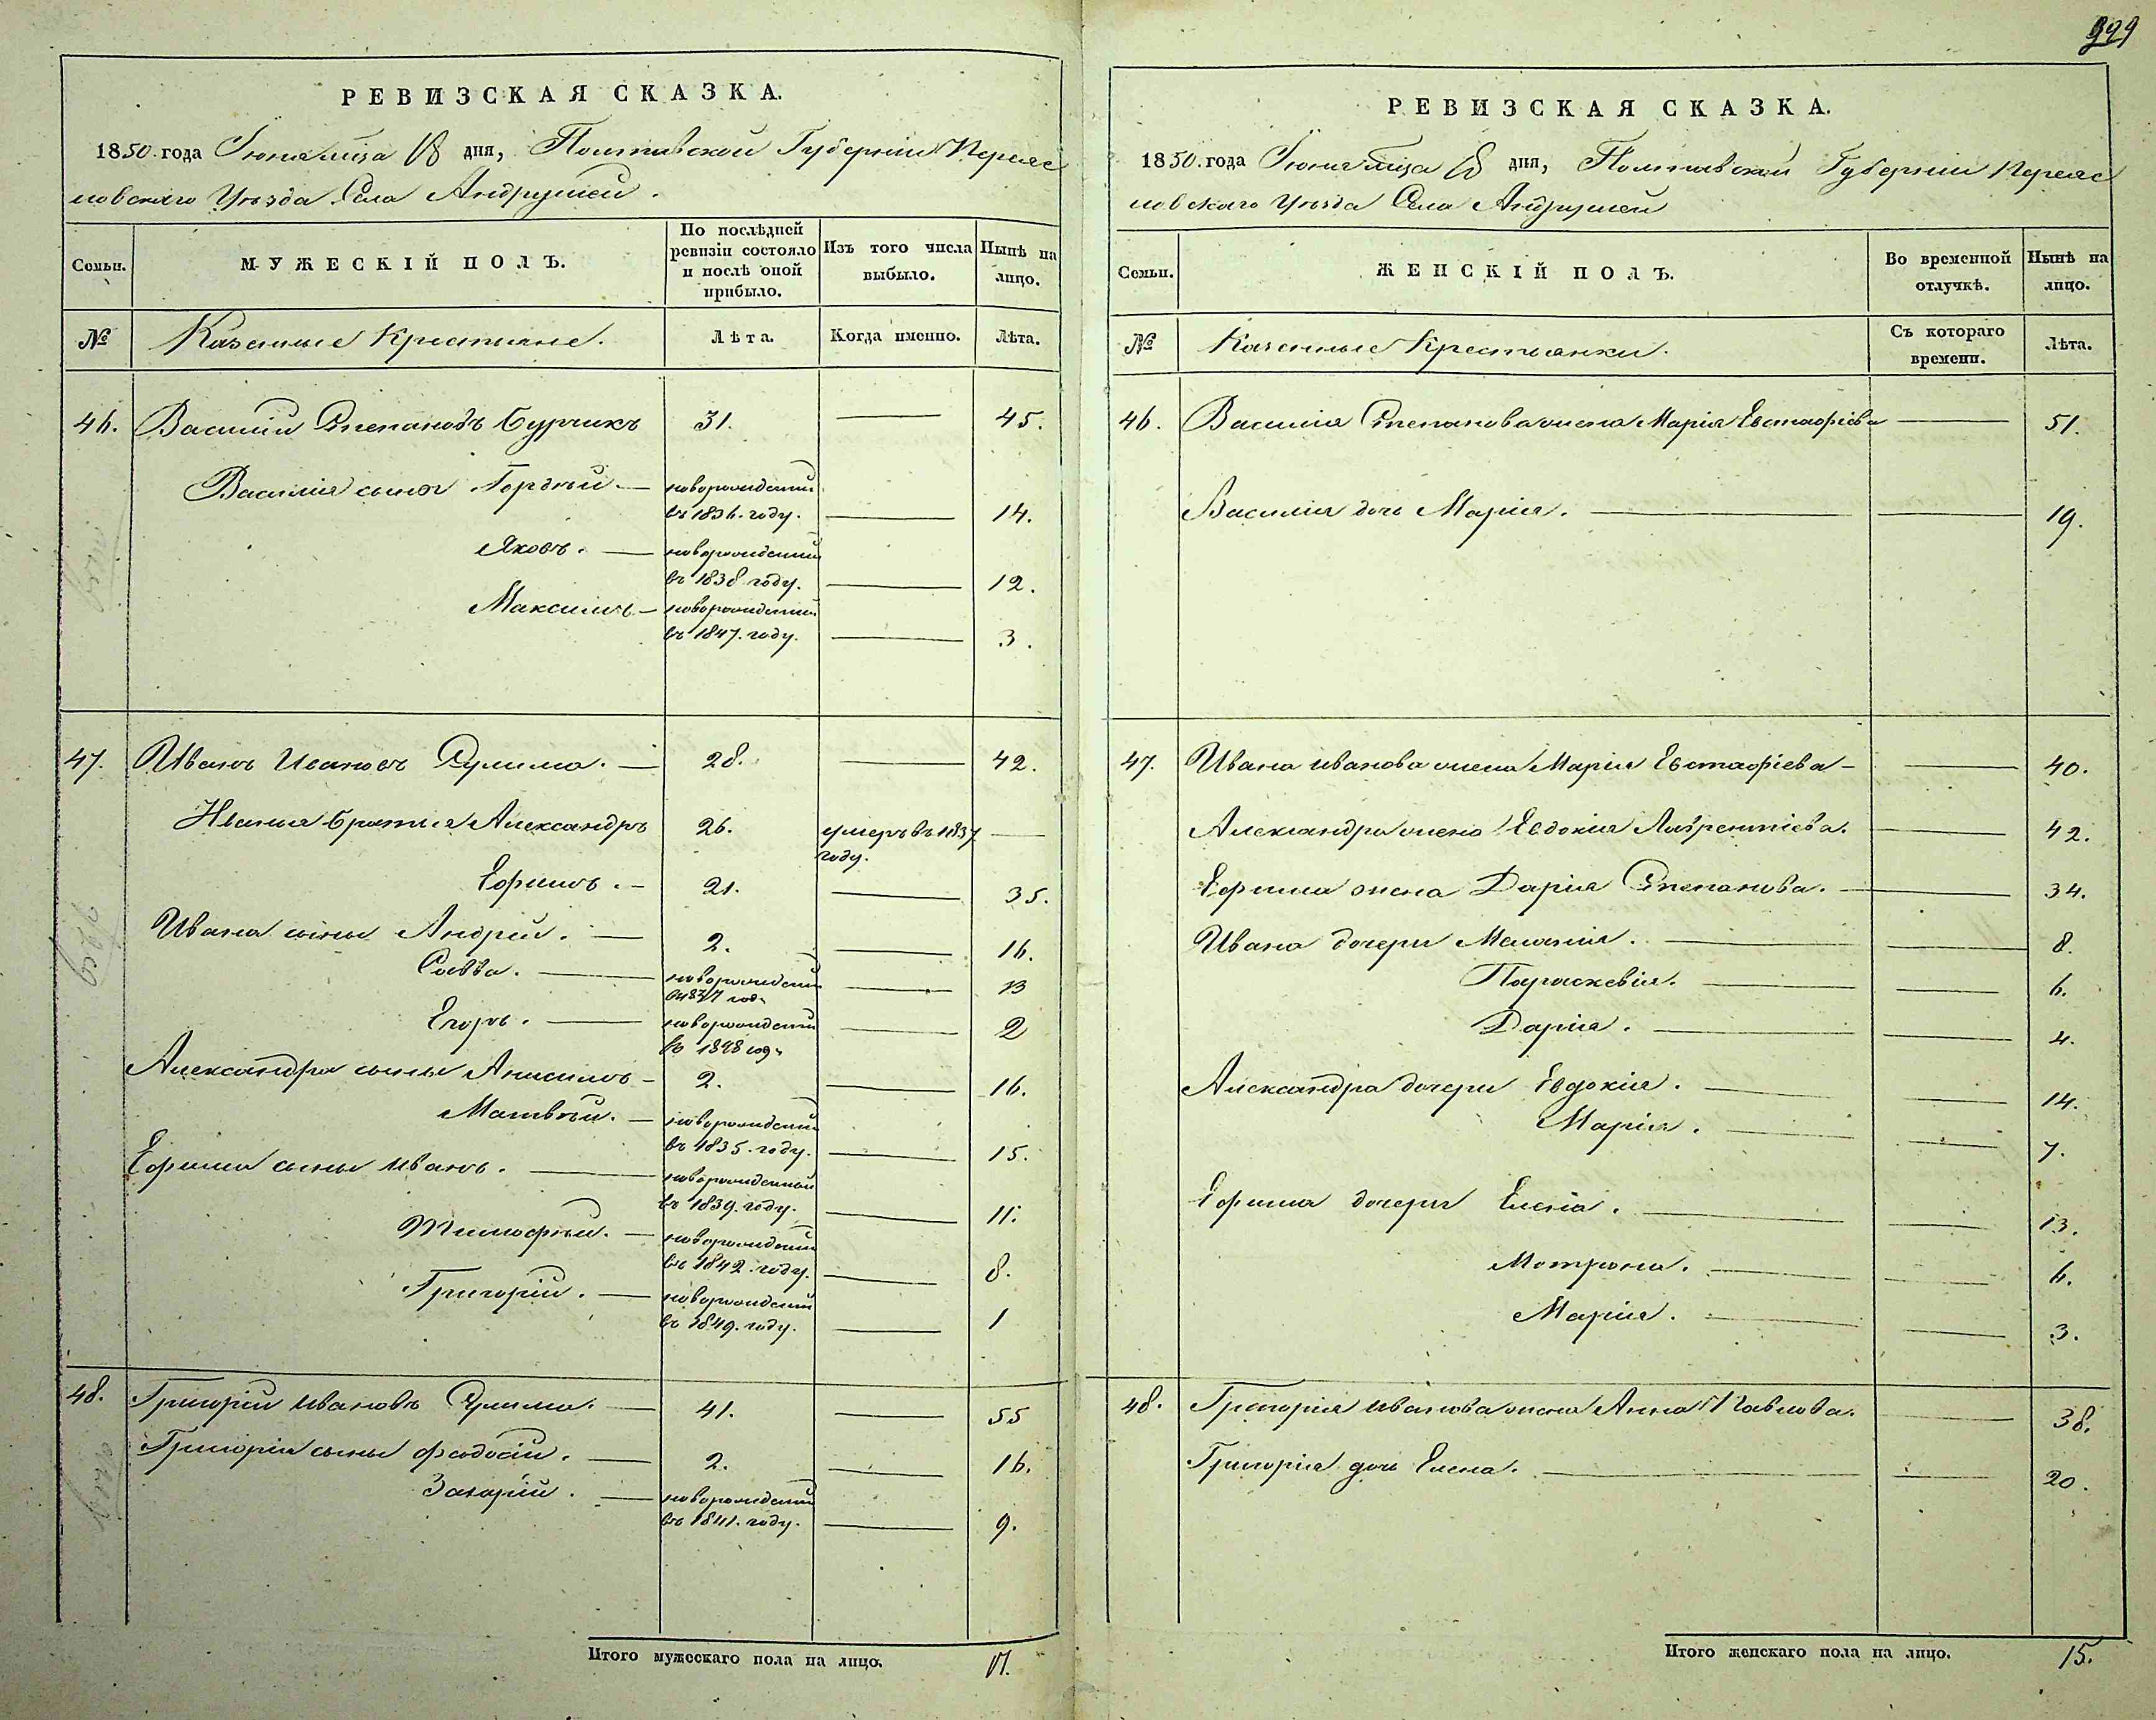 РЕВИЗСКАЯ СКАЗКА.
1850. года Іюня мѣсца 18 дня, Полтавской Губерніи Переяс
ловскаго Уѣзда Села Андрушей.
Семьи. МУЖЕСКІЙ ПОЛЪ. По послѣдней ревизіи состояло и послѣ оной прибыло. Изъ того числа выбыло. Нынѣ на лицо.
№ Казенные Крестьяне. Лѣта. Когда именно. Лѣта.
46. Василій Степановъ Бурчикъ 31. 45.
Василія сыны Гордѣй. новорожденный
въ 1836. году. 14.
Яковъ. новорожденный
въ 1838 году. 12.
Максимъ новорожденный
въ 1847. году. 3.
47. Иванъ Ивановъ Сулима. 28. 42.
Ивана братья Александръ 26. умеръ въ 1837
году.
Ефимъ. 21. 35.
Ивана сыны Андрій. 2. 16.
Савва. новорожденный 13
1837 год
Егоръ. новорожденный 2
въ 1848 год
Александра сыны Анисимъ 2. 16.
Матвѣй. новорожденный
въ 1835. году. 15.
Ефима сыны Иванъ. новорожденный
въ 1839. году. 11.
Тимофѣй. новорожденный
въ 1842. году. 8.
Григорій. новорожденный
въ 1849. году. 1
48. Григорій Ивановъ Сулима. 41. 55
Григорія сыны Феодосій. 2. 16.
Захарій. новорожденный
въ 1841. году. 9.
Итого мужескаго пола на лицо.
РЕВИЗСКАЯ СКАЗКА.
1850. года Іюня мѣсца 18 дня, Полтавской Губерніи Переяс
ловскаго Уѣзда Села Андрушей
Семьи. ЖЕНСКІЙ ПОЛЪ. Во временной отлучкѣ. Нынѣ на лицо.
№ Казенные Крестьянки. Съ котораго времени. Лѣта.
46. Василія Степанова жена Марія Евстафіева 51.
Василія дочь Марія. 19.
47. Ивана Иванова жена Марія Евстафіева 40.
Александра жена Евдокія Лаврентіева. 42.
Ефима жена Дарія Степанова. 34.
Ивана дочери Меланія. 8.
Параскевія. 6.
Дарія. 4.
Александра дочери Евдокія. 14.
Марія. 7.
Ефима дочери Елена. 13.
Мотрона. 6.
Марія. 3.
48. Григорія Иванова жена Анна Павлова. 38.
Григорія дочь Елена. 20.
Итого женскаго пола на лицо. 15.